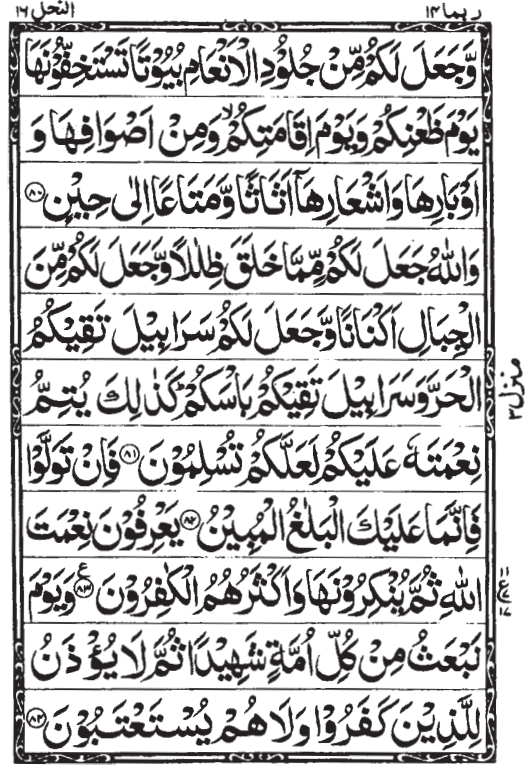 ربما ١٤
النحل ١٦
وَّجَعَلَ لَكُمْ مِّنْ جُلُوْدِ الْاَنْعَامِ بُيُوْتًا تَسْتَخِفُّوْنَهَا
يَوْمَ ظَعْنِكُمْ وَيَوْمَ اِقَامَتِكُمْ ۙ وَمِنْ اَصْوَافِهَا وَ
اَوْبَارِهَا وَاَشْعَارِهَاۤ اَثَاثًا وَّمَتَاعًا اِلٰى حِيْنٍ ٨٠
وَاللّٰهُ جَعَلَ لَكُمْ مِّمَّا خَلَقَ ظِلٰلًا وَّجَعَلَ لَكُمْ مِّنَ
الْجِبَالِ اَكْنَانًا وَّجَعَلَ لَكُمْ سَرَابِيْلَ تَقِيْكُمُ
الْحَرَّ وَسَرَابِيْلَ تَقِيْكُمْ بَاْسَكُمْ ؕ كَذٰلِكَ يُتِمُّ
نِعْمَتَهٗ عَلَيْكُمْ لَعَلَّكُمْ تُسْلِمُوْنَ ٨١ فَاِنْ تَوَلَّوْا
فَاِنَّمَا عَلَيْكَ الْبَلٰغُ الْمُبِيْنُ ٨٢ يَعْرِفُوْنَ نِعْمَتَ
اللّٰهِ ثُمَّ يُنْكِرُوْنَهَا وَاَكْثَرُهُمُ الْكٰفِرُوْنَ ٨٣ ع وَيَوْمَ
نَبْعَثُ مِنْ كُلِّ اُمَّةٍ شَهِيْدًا ثُمَّ لَا يُؤْذَنُ
لِلَّذِيْنَ كَفَرُوْا وَلَا هُمْ يُسْتَعْتَبُوْنَ ٨٤
منزل ٣